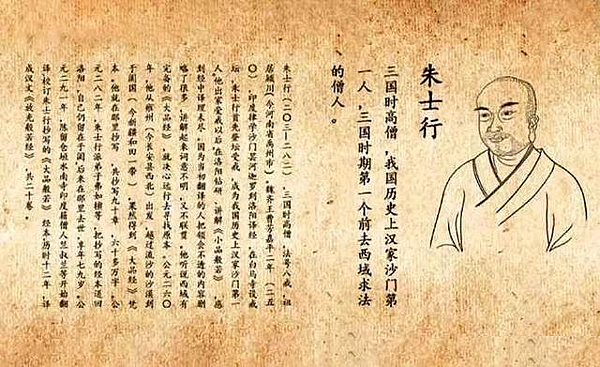 朱士行
三国时高僧，我国历史上汉家沙门第
一人，三国时期第一个前去西域求法
的僧人。
朱士行（二〇三－二八二），三国时高僧，法号八戒，祖
居颍川（今河南省禹州市）。魏齐王曹芳嘉平二年（二五
〇），印度律学沙门昙河迦罗到洛阳译经，在白马寺设戒
坛，朱士行首先登坛受戒，成为我国历史上汉家沙门第一
人。他出家受戒以后，在洛阳钻研、讲解《小品般若》，感
到经中译理未尽。因为当初翻译的人把领会不透的内容删
略了很多，讲解起来词意不明，又不联贯。他听说西域有
完备的《大品经》，就决心远行去寻找原本。公元二六〇
年，他从雍州（今长安县西北）出发，越过流沙的沙漠到
于阗国（今新疆和田一带），果然得到《大品经》梵
本。他就在那里抄写，共抄写九十章，六十多万字。公
元二八二年，朱士行派弟子弗如檀等，把抄写的经本送回
洛阳，自己仍留在于阗，后来在那里去世，享年七九岁。公
元二九一年，陈留仓垣水南寺印度籍僧人竺叔兰等开始翻
译、校订朱士行抄写的《大品般若》经本，历时十二年，译
成汉文《放光般若经》，共二十卷。